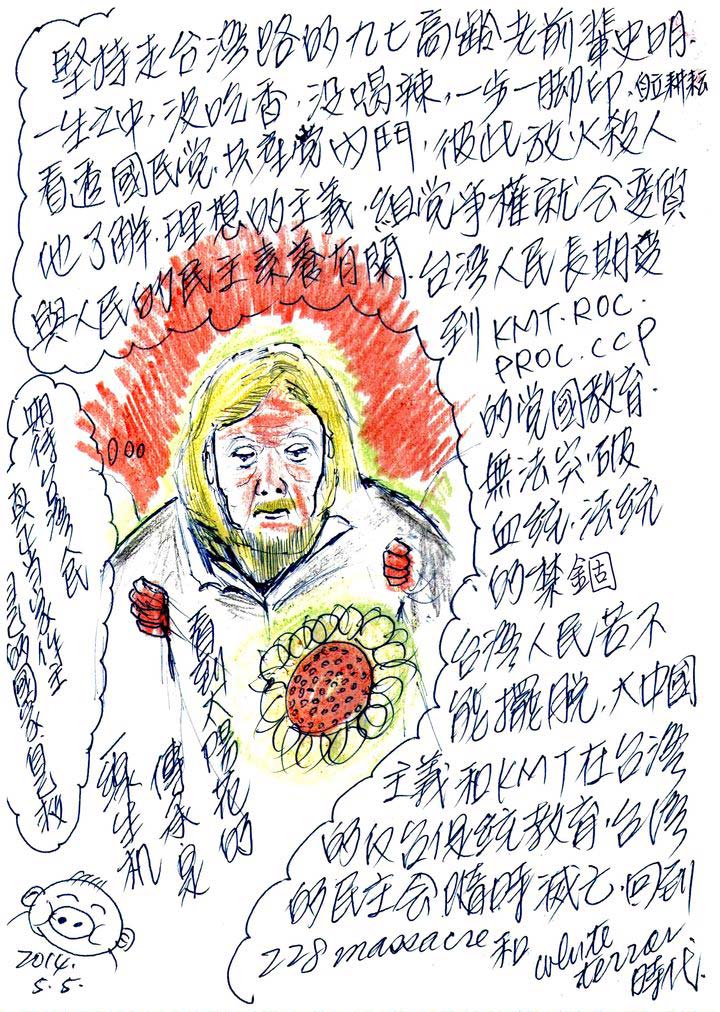 堅持走台灣路的九七高齡老前輩史明.
一生之中,沒吃香,沒喝辣,一步一腳印.自立耕耘
看透國民党.共產党內鬥.彼此放火殺人
他了解.理想的主義.組党爭權就会变質
與人民的民主素養有關.台灣人民長期受
到KMT.ROC.
PROC.CCP
的党國教育.
無法突破
血統.法統
的禁錮
台灣人民若不
能擺脫.大中國
主義和KMT在台灣
的反台促統教育.台灣
的民主会隨時滅亡.回到
228 massacre和 white
terror
時代.
看到太陽花的
傳承與
新生机
期待台灣人民
真正当家作主
自己的國家.自己救
2014.
5.5.